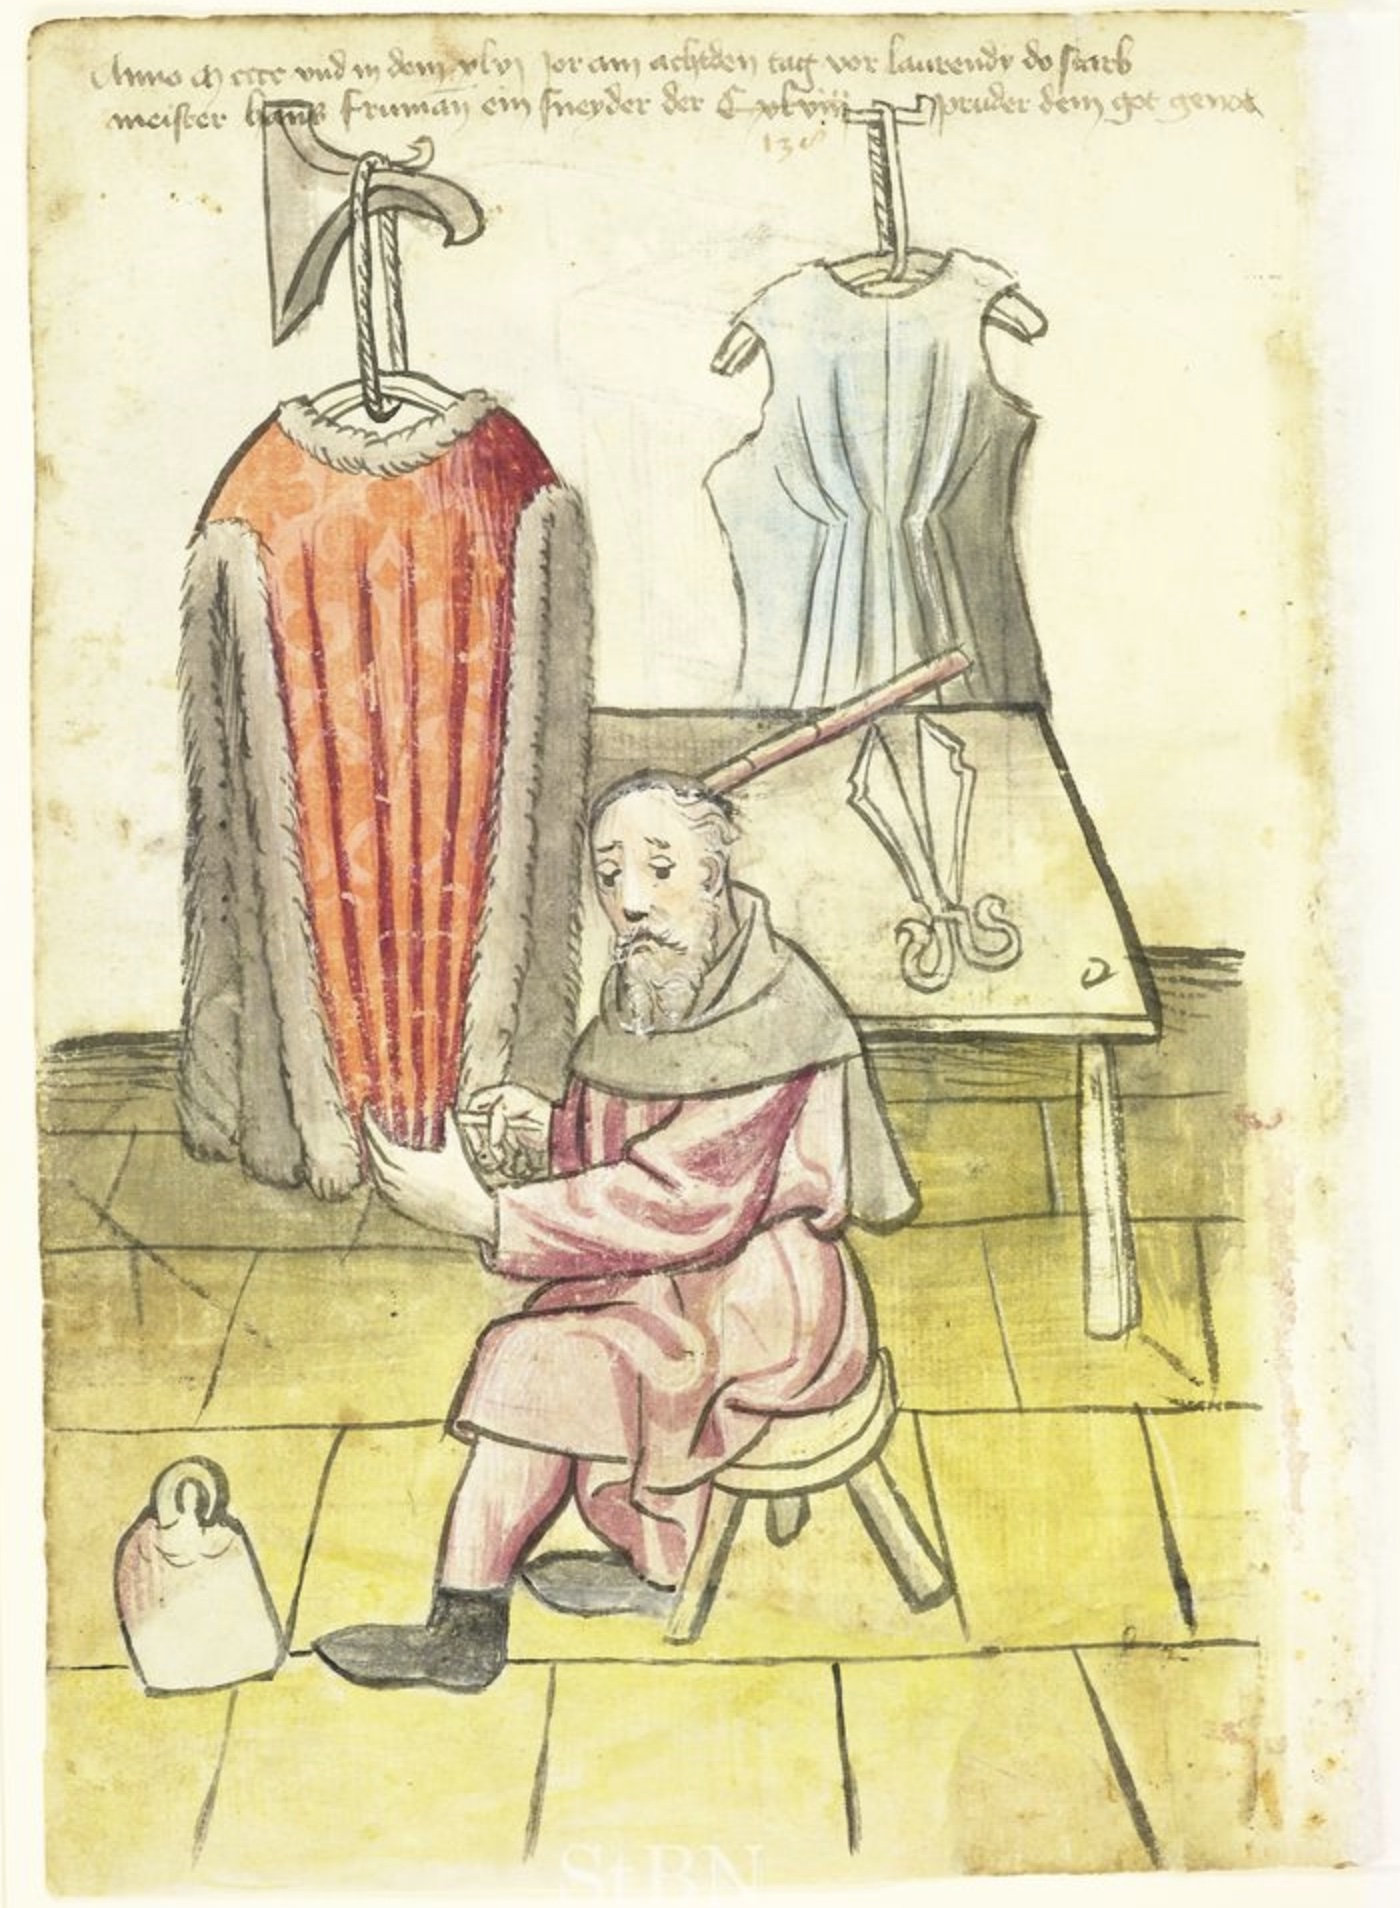 Anno m cccc und in dem xlvj Jor am achtden tag vor laurendy do starb
meister hans fruman ein sneyder der C xlviij pruder dem got genot
StBN